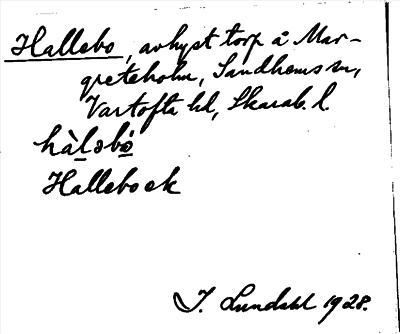 Hallebo, avhyst torp å Mar-
greteholm, Sandhems sn,
Vartofta hd, Skarab. l.
hàləbò
Hallebo ek
I. Lundahl 1928.